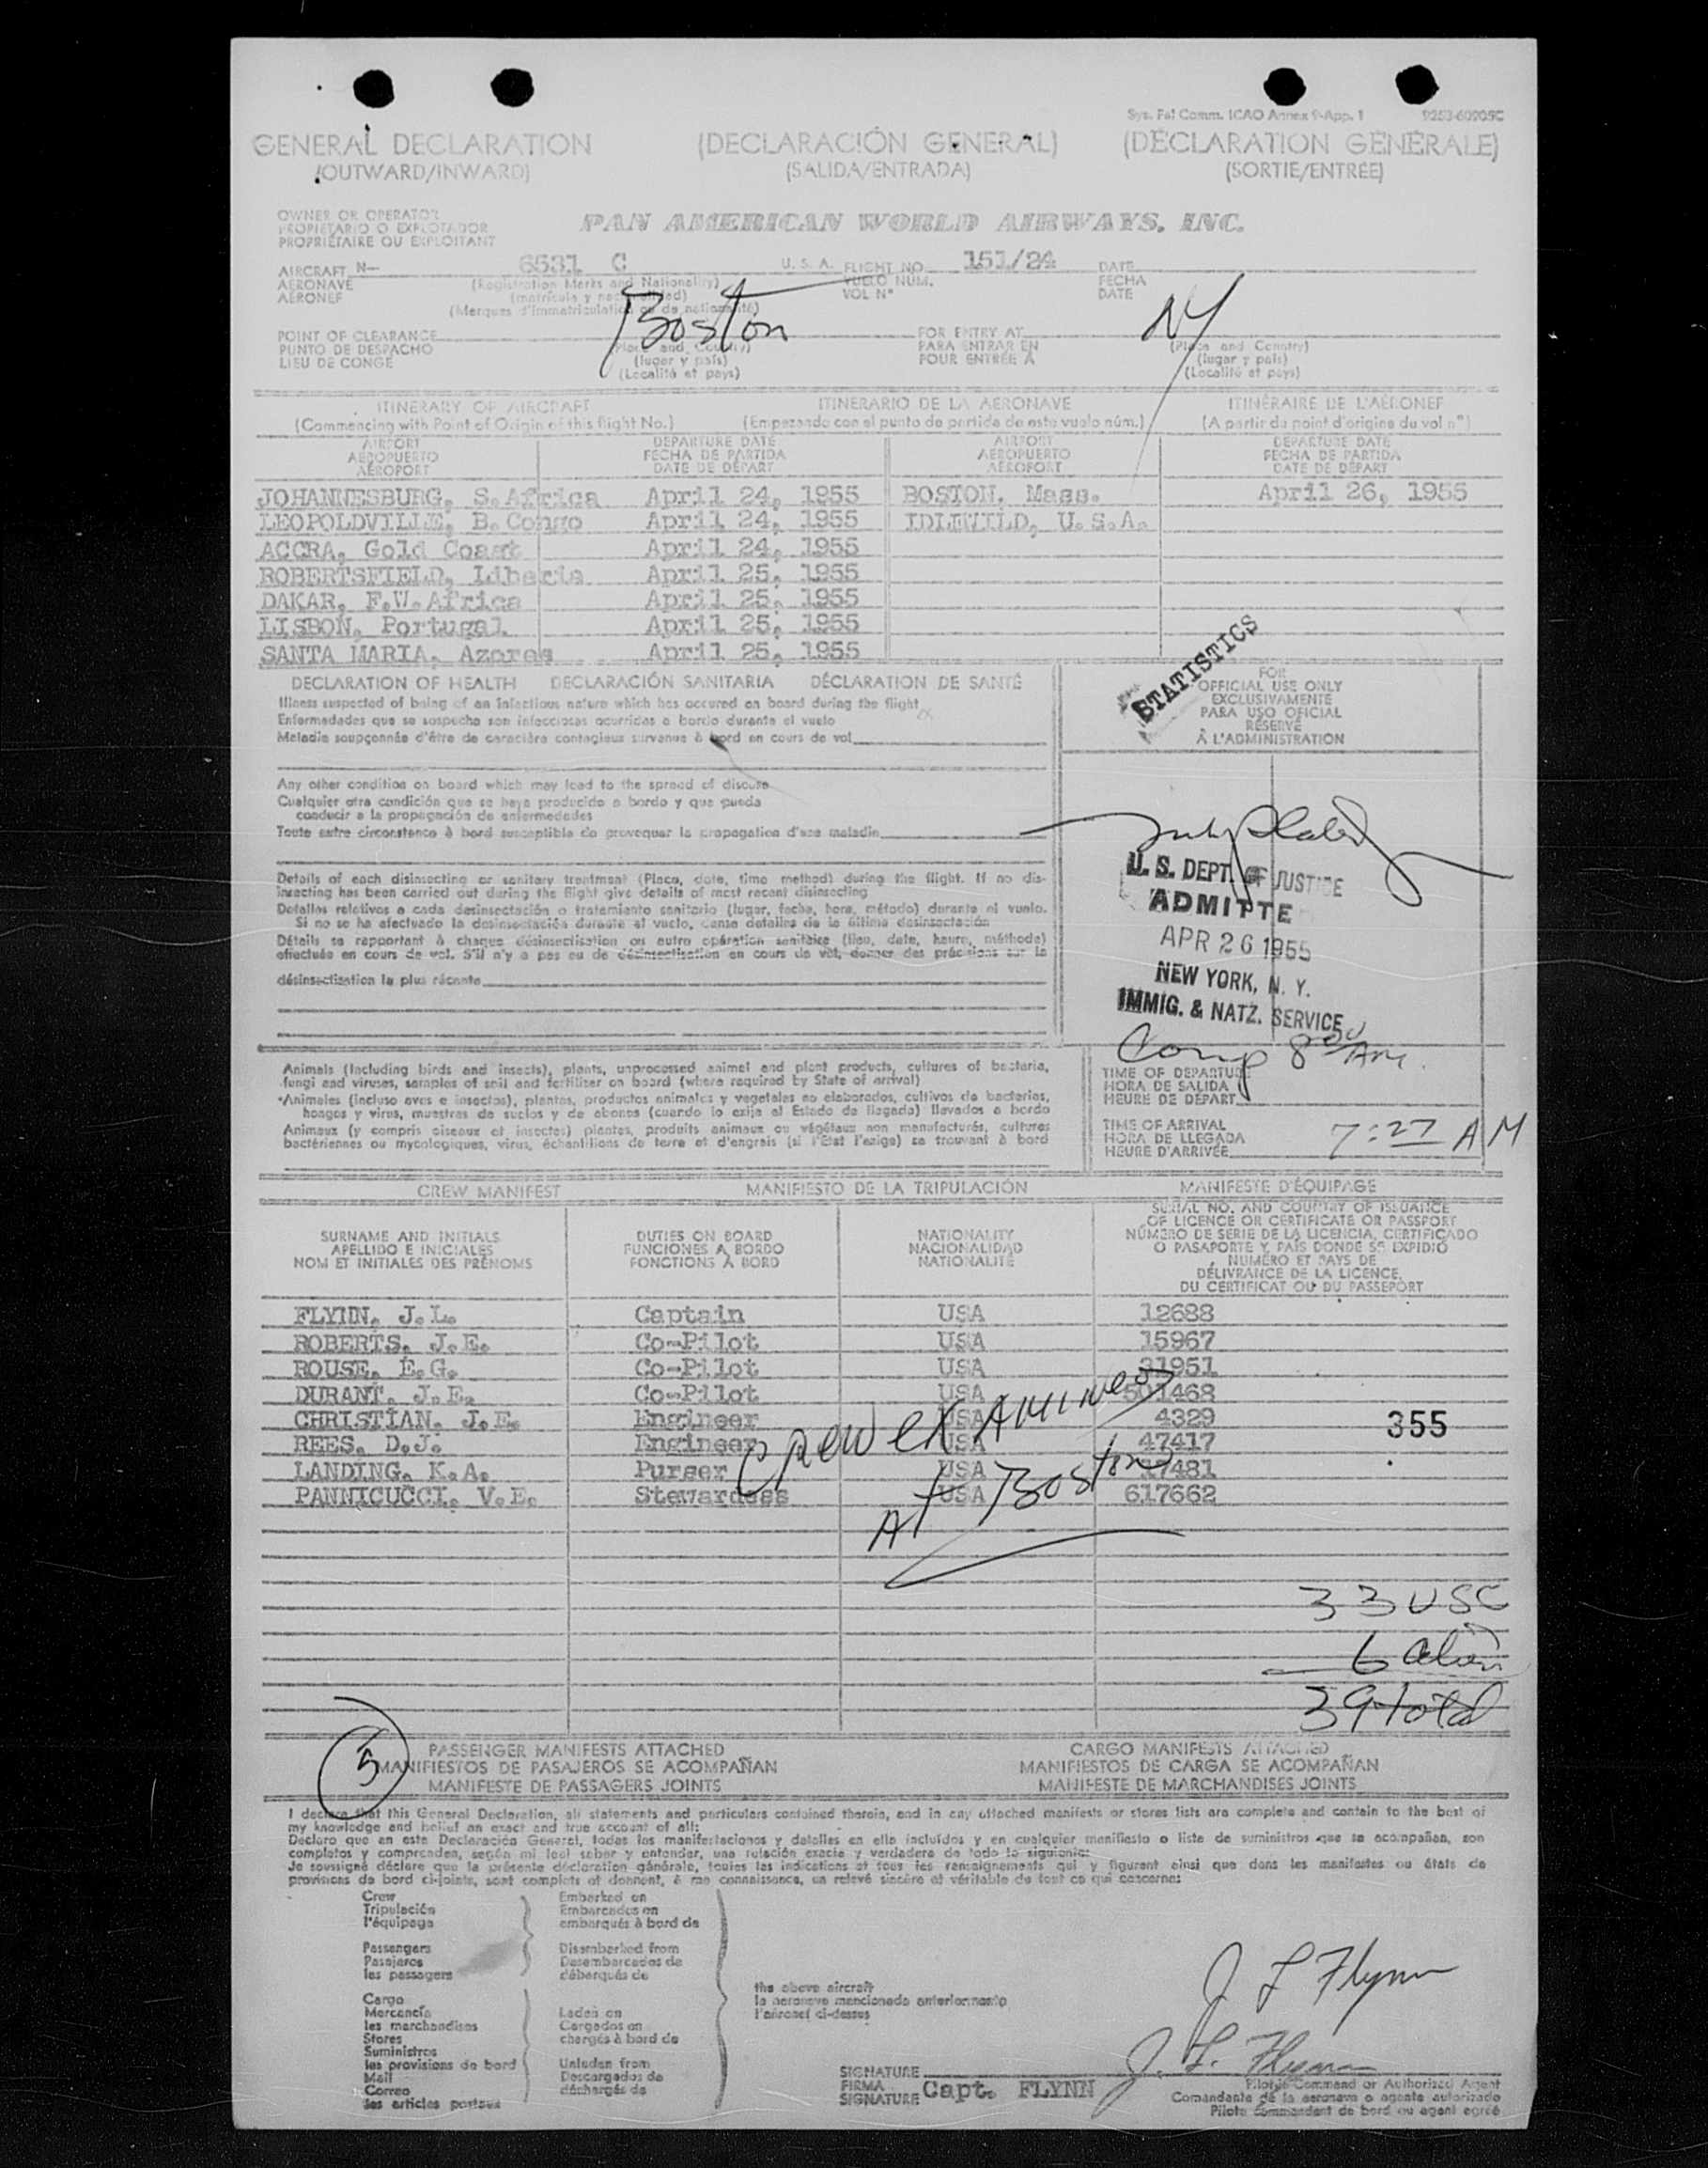 Sys. Fal Comm. ICAO Annex 9-App. 1 9253-60205C
GENERAL DECLARATION (DECLARACIÓN GENERAL) (DÉCLARATION GÉNÉRALE)
(OUTWARD/INWARD) (SALIDA/ENTRADA) (SORTIE/ENTRÉE)
OWNER OR OPERATOR
PROPIETARIO O EXPLOTADOR
PROPRIÉTAIRE OU EXPLOITANT
PAN AMERICAN WORLD AIRWAYS, INC.
AIRCRAFT N— 6531 C U. S. A. FLIGHT NO. 151/24 DATE
AERONAVE (Registration Marks and Nationality) VUELO NÚM. FECHA
AÉRONEF (matrícula y nacionalidad) VOL N° DATE
(Merques d'immatriculation ou de nationalité)
Boston NY
POINT OF CLEARANCE FOR ENTRY AT
PUNTO DE DESPACHO (Place and Country) PARA ENTRAR EN (Place and Country)
LIEU DE CONGÉ (lugar y país) POUR ENTRÉE À (lugar y país)
(Localité et pays) (Localité et pays)
ITINERARY OF AIRCRAFT ITINERARIO DE LA AERONAVE ITINÉRAIRE DE L'AÉRONEF
(Commencing with Point of Origin of this flight No.) (Empezando con el punto de partida de este vuelo núm.) (A partir du point d'origine du vol n°)
AIRPORT DEPARTURE DATE AIRPORT DEPARTURE DATE
AEROPUERTO FECHA DE PARTIDA AEROPUERTO FECHA DE PARTIDA
AÉROPORT DATE DE DÉPART AÉROPORT DATE DE DÉPART
JOHANNESBURG, S.Africa April 24, 1955 BOSTON, Mass. April 26, 1955
LEOPOLDVILLE, B.Congo April 24, 1955 IDLEWILD, U.S.A.
ACCRA, Gold Coast April 24, 1955
ROBERTSFIELD, Liberia April 25, 1955
DAKAR, F.W.Africa April 25, 1955
LISBON, Portugal April 25, 1955
SANTA MARIA, Azores April 25, 1955
STATISTICS
DECLARATION OF HEALTH DECLARACIÓN SANITARIA DÉCLARATION DE SANTÉ
Illness suspected of being of an infectious nature which has occured on board during the flight
Enfermedades que se sospecha son infecciosas ocurridas a bordo durante el vuelo
Maladie soupçonnée d'être de caractère contagieux survenue à bord en cours de vol
FOR
OFFICIAL USE ONLY
EXCLUSIVAMENTE
PARA USO OFICIAL
RÉSERVÉ
À L'ADMINISTRATION
Any other condition on board which may lead to the spread of disease
Cualquier otra condición que se haya producido a bordo y que pueda
conducir a la propagación de enfermedades
Toute autre circonstance à bord susceptible de provoquer la propagation d'une maladie
Details of each disinsecting or sanitary treatment (Place, date, time method) during the flight. If no dis-
insecting has been carried out during the flight give details of most recent disinsecting
Detalles relativos a cada desinsectación o tratamiento sanitario (lugar, fecha, hora, método) durante el vuelo.
Si no se ha efectuado la desinsectación durante el vuelo, canse detalles de la última desinsectación
Détails se rapportant à chaque désinsectisation ou autre opération sanitaire (lieu, date, heure, méthode)
effectuée en cours de vol. S'il n'y a pas eu de désinsectisation en cours de vol, donner des précisions sur la
désinsectisation la plus récente
U. S. DEPT. OF JUSTICE
ADMITTE
APR 26 1955
NEW YORK, N. Y.
IMMIG. & NATZ. SERVICE
Comp 8 00 AM.
Animals (Including birds and insects), plants, unprocessed animal and plant products, cultures of bacteria,
fungi and viruses, samples of soil and fertiliser on board (where required by State of arrival)
*Animales (incluso aves e insectos), plantas, productos animales y vegetales no elaborados, cultivos de bacterias,
hongos y virus, muestras de suelos y de abonos (cuando lo exija el Estado de llegada) llevados a bordo
Animaux (y compris oiseaux et insectes) plantes, produits animaux ou végétaux non manufacturés, cultures
bactériennes ou mycologiques, virus, échantillons de terre et d'engrais (si l'État l'exige) se trouvant à bord
TIME OF DEPARTURE
HORA DE SALIDA
HEURE DE DÉPART
TIME OF ARRIVAL
HORA DE LLEGADA
HEURE D'ARRIVÉE 7:27 AM
CREW MANIFEST MANIFIESTO DE LA TRIPULACIÓN MANIFESTE D'ÉQUIPAGE
SURNAME AND INITIALS DUTIES ON BOARD NATIONALITY
APELLIDO E INICIALES FUNCIONES A BORDO NACIONALIDAD
NOM ET INITIALES DES PRÉNOMS FONCTIONS À BORD NATIONALITÉ
SERIAL NO. AND COUNTRY OF ISSUANCE
OF LICENCE OR CERTIFICATE OR PASSPORT
NÚMERO DE SERIE DE LA LICENCIA, CERTIFICADO
O PASAPORTE Y PAÍS DONDE SE EXPIDIÓ
NUMÉRO ET PAYS DE
DÉLIVRANCE DE LA LICENCE,
DU CERTIFICAT OU DU PASSEPORT
FLYNN, J.L. Captain USA 12688
ROBERTS, J.E. Co-Pilot USA 15967
ROUSE, E.G. Co-Pilot USA 31951
DURANT, J.E. Co-Pilot USA 501468
CHRISTIAN, J.E. Engineer USA 4329
REES, D.J. Engineer USA 47417
LANDING, K.A. Purser USA 37481
PANNICUCCI, V.E. Stewardess USA 617662
355
Crew examined
At Boston
33 USC
6 alien
39 total
5
PASSENGER MANIFESTS ATTACHED CARGO MANIFESTS ATTACHED
MANIFIESTOS DE PASAJEROS SE ACOMPAÑAN MANIFIESTOS DE CARGA SE ACOMPAÑAN
MANIFESTE DE PASSAGERS JOINTS MANIFESTE DE MARCHANDISES JOINTS
I declare that this General Declaration, all statements and particulars contained therein, and in any attached manifests or stores lists are complete and contain to the best of
my knowledge and belief an exact and true account of all:
Declaro que en esta Declaración General, todas las manifestaciones y detalles en ella incluídos y en cualquier manifiesto o lista de suministros que se acompañan, son
completos y comprenden, según mi leal saber y entender, una relación exacta y verdadera de todo lo siguiente:
Je soussigné déclare que la présente déclaration générale, toutes les indications et tous les renseignements qui y figurent ainsi que dans les manifestes ou états de
provisions de bord ci-joints, sont complets et donnent, à ma connaissance, un relevé sincère et véritable de tout ce qui concerne:
Crew Embarked on
Tripulación Embarcados en
l'équipage embarqués à bord de
Passengers Disembarked from
Pasajeros Desembarcados de
les passagers débarqués de
the above aircraft
la aeronave mencionada anteriormente
l'aéronef ci-dessus
Cargo
Mercancía Laden on
les marchandises Cargados en
Stores chargés à bord de
Suministros
les provisions de bord Unladen from
Mail Descargados de
Correo déchargés de
les articles postaux
J L Flynn
J. L. Flynn
SIGNATURE
FIRMA
SIGNATURE Capt. FLYNN
Pilot in Command or Authorized Agent
Comandante de la aeronave o agente autorizado
Pilote Commandant de bord ou agent agréé